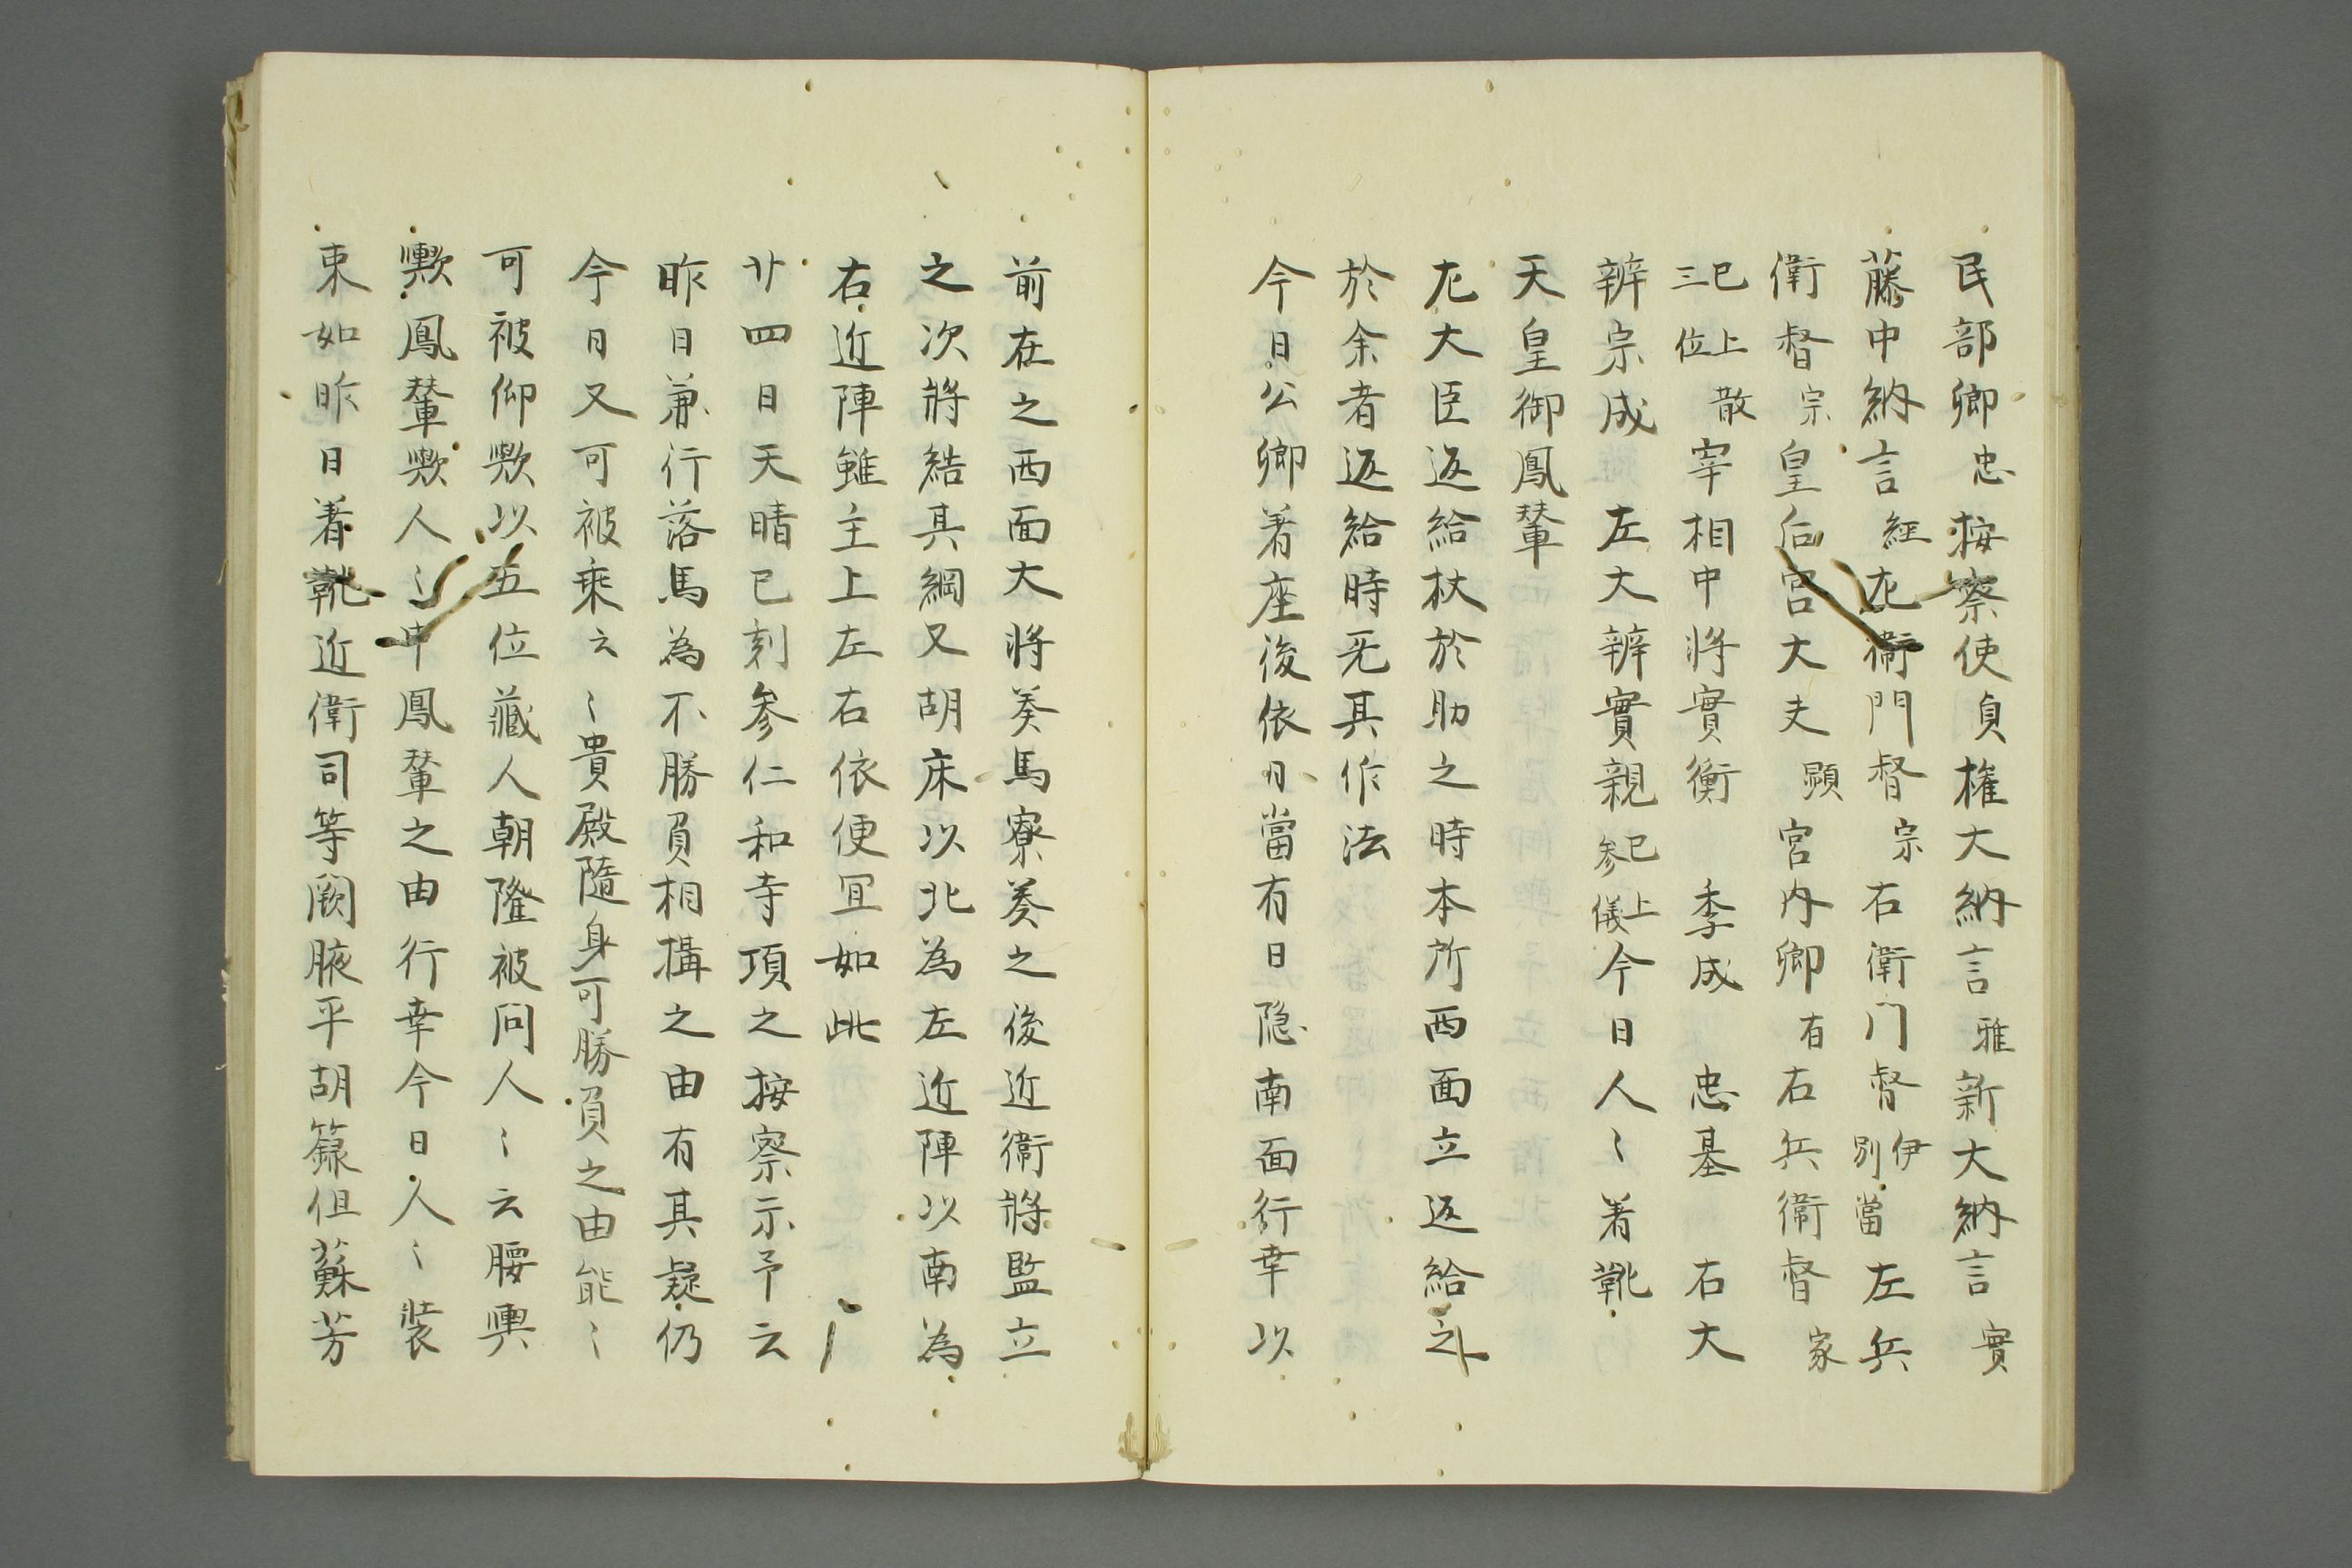 民部卿忠按察使貞権大納言雅新大納言實
藤中納言経左衛門督宗右衛门督伊別當左兵
衛督宗皇后宮大夫顕宮内卿有右兵衛督家
已上三位散宰相中将實衡 季成 忠基 右大
辨宗成 左大辨實親已上参儀今日人〻著靴
天皇御鳳輦
左大臣返給杖於助之時本所西面立返給之
於余者返給時无其作法
今日公卿著座後依日當有日隠南面行幸以
前在之西面大将葵馬寮葵之後近衛将監立
之次将結其綱又胡床以北為左近陣以南為
右近陣雖主上左右依便冝如此
廿四日天晴已刻参仁和寺項之按察示予云
昨日兼行落馬為不勝負相搆之由有其疑仍
今日又可被乗云〻貴殿隨身可勝負之由能〻
可被仰歟以五位蔵人朝隆被问人〻云腰輿
歟鳳輦歟人〻申鳳輦之由行幸今日人〻装
束如昨日著靴近衛司等闕腋平胡籙但蘇芳